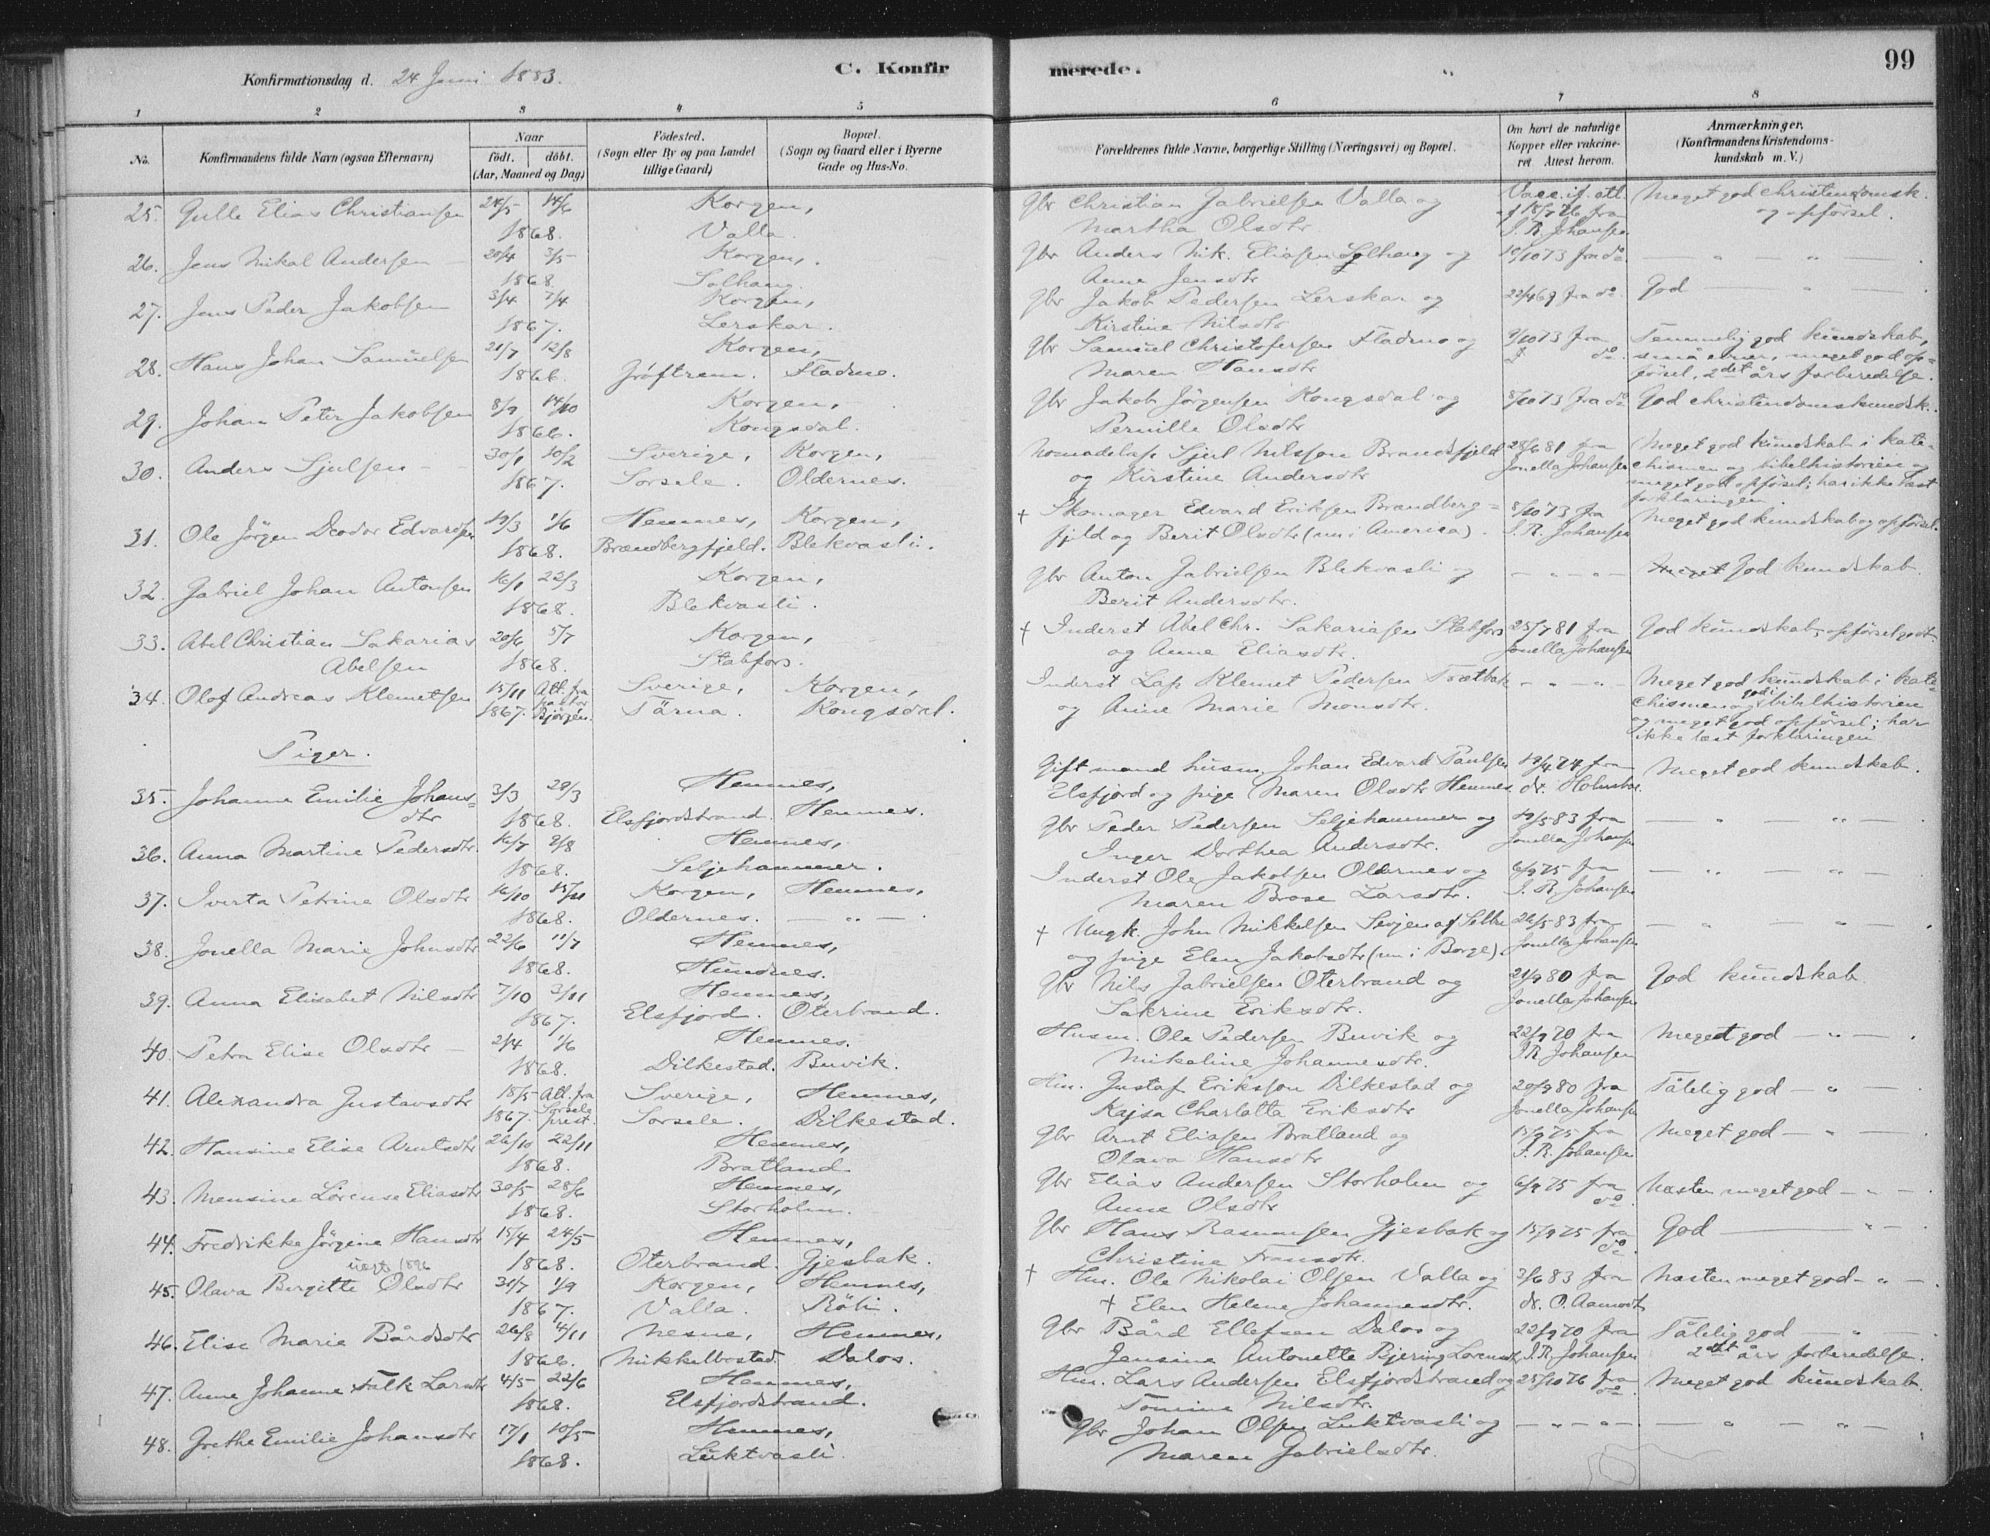 99
Konfirmationsdag d. 24 Juni 1883.
C. Konfirmerede.
1 2 3 4 5 6 7 8
No. Konfirmandens fulde Navn (ogsaa Efternavn) Naar födt. döbt. (Aar, Maaned og Dag) Födested. (Sogn eller By og paa Landet tillige Gaard) Bopæl. (Sogn og Gaard eller i Byerne Gade og Hus-No. Forældrenes fulde Navne, borgerlige Stilling (Næringsvei) og Bopæl. Om havt de naturlige Kopper eller vakcineret. Attest herom. Anmærkninger. (Konfirmandens Kristendomskundskab m. V.)
25. Gulle Elias Christiansen 24/5 14/6 1868. Korgen, Valla. Gbr Christian Gabrielsen Valla og Martha Olsdtr. Vacc. if. att. 18/7 76 fra I. R. Johansen Meget god christendomsk. og opførsel.
26. Jens Nikal Andersen 20/4 3/5 1868 Korgen, Solhaug. Gbr Anders Nik. Eliasen Solhaug og Anne Jensdtr 10/10 73 fra do — „ — „ —
27. Jens Peder Jakobsen 3/4 7/4 1867. Korgen, Lerskar. Gbr Jakob Pedersen Lerskar og Kirstine Nilsdtr 22/4 69 fra do God — „ —
28. Hans Johan Samuelsen 21/7 12/8 1866. Korgen, Grøftrem. Fladmo. Gbr Samuel Christofersen Fladmo og Maren Hansdtr 9/10 73 fra do. Temmelig god kundskab, små evner, meget god opførsel, 2det års forberedelse.
29. Johan Peter Jakobsen 8/9 14/10 1866. Korgen, Kongsdal. Gbr Jakob Jörgensen Kongsdal og Pernille Olsdtr 8/10 73 fra do God christendomskundsk.
30. Anders Sjulsen 30/1 10/2 1867. Sverige, Sorsele. Korgen, Oldernes. Nomadelap Sjul Nilssen Brandsfjeld og Kirstine Andersdtr 28/6 81 fra Jonella Johansen Meget god kundskab i katechismen og bibelhistorien og meget god opførsel; har ikke læst forklaringen.
31. Ole Jörgen Deodor Edvardsen 19/3 1/6 1868. Hemnes, Brændbergfjeld. Korgen, Blekvasli. † Skomager Edvard Eriksen Brandbergfjeld og Berit Olsdtr (nu i America). 8/10 73 fra I. R. Johansen Meget god kundskab og opførsel.
32. Gabriel Johan Antonsen 16/1 22/3 1868. Korgen, Blekvasli. Gbr Anton Gabrielsen Blekvasli og Berit Andersdtr. — „ — „ — Meget God kundskab.
33. Abel Christian Sakarias Abelsen 20/6 5/7 1868. Korgen, Stabfors. † Inderst Abel Chr. Sakariasen Stabfors og Anne Eliasdtr. 25/7 81 fra Jonella Johansen God kundskab, opførsel godt.
34. Olof Andreas Klemetsen 15/11 1867. Att. fra pastor Bjørzén. Sverige, Tärna. Korgen, Kongsdal. Inderst Lap Klemet Pedersen Tvætbak og Anne Marie Monsdtr. — „ — „ — Meget god kundskab i katechismen og god i bibelhistorien og meget god opførsel; har ikke læst forklaringen
Piger.
35. Johanna Emilie Johansdtr 3/3 29/3 1868. Hemnes, Elsfjordstrand. Hemnes. Gift mand husm. Johan Edvard Paulsen Elsfjord og pige Maren Olsdtr Hemnes 19/4 74 fra dr. Holmboe. Meget god kundskab.
36. Anna Martine Pedersdtr 16/7 2/8 1868. Hemnes, Seljehammer. Gbr Peder Pedersen Seljehammer og Inger Dorthea Andersdtr. 19/5 83 fra Jonella Johansen — „ — „ —
37. Sverta Petrine Olsdtr 16/10 15/11 1868. Korgen, Oldernes. Hemnes, — „ — Inderst Ole Jakobsen Oldernes og Maren Brose Larsdtr. 6/9 75 fra I. R. Johansen — „ — „ —
38. Jonella Marie Johnsdtr 22/6 11/7 1868. Hemnes, Hundnes. † Ungk. John Mikkelsen Sevjen af Selbu og pige Elen Jakobsdtr (nu i Borge). 26/5 83 fra Jonella Johansen — „ — „ —
39. Anna Elisabet Nilsdtr 7/10 3/11 1867. Hemnes, Elsfjord. Oterbrand. Gbr Nils Gabrielsen Oterbrand og Sakrine Eriksdtr. 21/9 80 fra Jonella Johansen God kundskab.
40. Petra Elise Olsdtr 2/4 1/6 1868. Hemnes. Dilkestad. Buvik. Husm. Ole Pedersen Buvik og Nikoline Johannesdtr. 22/9 70 fra I. R. Johansen Meget god — „ —
41. Alexandra Gustavsdtr 18/5 1867. Att. fra Sorsele prest. Sverige, Sorsele. Hemnes, Dilkestad. Hm. Gustaf Eriksson Dilkestad og Kajsa Charlotta Eriksdtr 20/9 80 fra Jonella Johansen Tålelig god — „
42. Hansine Elise Arntsdtr 26/10 22/11 1868. Hemnes, Bratland Gbr Arnt Eliasen Bratland og Olava Hansdtr 15/9 75 fra I. R. Johansen Meget god — „ —
43. Mensine Lörense Eliasdtr 30/5 28/6 1868. Hemnes, Storholm. Gbr Elias Andersen Storholm og Anne Olsdtr 6/9 75 fra do Næsten meget god — „
44. Fredrikke Jörgine Hansdtr 15/4 24/5 1868. Hemnes, Oterbrand. Gjesbak. Gbr Hans Rasmussen Gjesbak og Christine Fransdtr. 15/9 75 fra do God — „ —
45. Olava Bergitte Olsdtr 31/7 1/9 1867. Korgen, Valla. Hemnes, Röli. † Hm. Ole Nikolai Olsen Valla og † Elen Helene Johannesdtr. 3/6 83 fra dr. O. Aamodt Næsten meget god — „ —
46. Elise Marie Bårdsdtr 26/8 4/11 1866. Nesne, Mikkelbostad. Hemnes, Dalos. Gbr Bård Ellefsen Dalos og Jensine Antonette Bjering Lorensdtr 22/9 70 fra I. R. Johansen Tålelig god — „ — 2det års forberedelse.
47. Anne Johanne Falk Larsdtr 4/5 22/6 1868. Hemnes, Elsfjordstrand. Hm. Lars Andersen Elsfjordstrand og Tomine Nilsdtr. 25/10 76 fra do Meget god kundskab.
48. Grethe Emilie Johansdtr 17/1 10/5 1868. Hemnes, Luktvasli. Gbr Johan Olsen Luktvasli og Maren Gabrielsdtr. — „ — „ — — „ — „ —